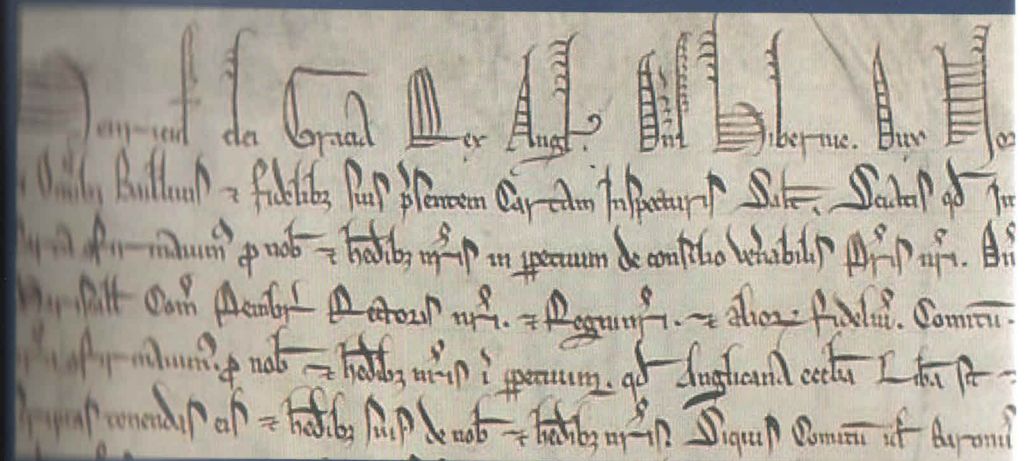 Henricus dei Gracia Rex Angl Dns Hibernie. Dux No
Omibz Ballivis ⁊ fidelibz suis psentem Cartam Inspecturis Salt. Sciatis qd In
confirmavim p nob ⁊ hedibz nris in ppetuum de consilio venabilis Pris nri. Dn
Marescall Com Pembr Rectoris nri. ⁊ Regni nri. ⁊ alior fideliu. Comitu
confirmavim. p nob ⁊ hedibz nris i ppetuum. qd Anglicana ecclia Liba sit
tenendas eis ⁊ hedibz suis de nob ⁊ hedibz nris. Siquis Comitu ul Baronu